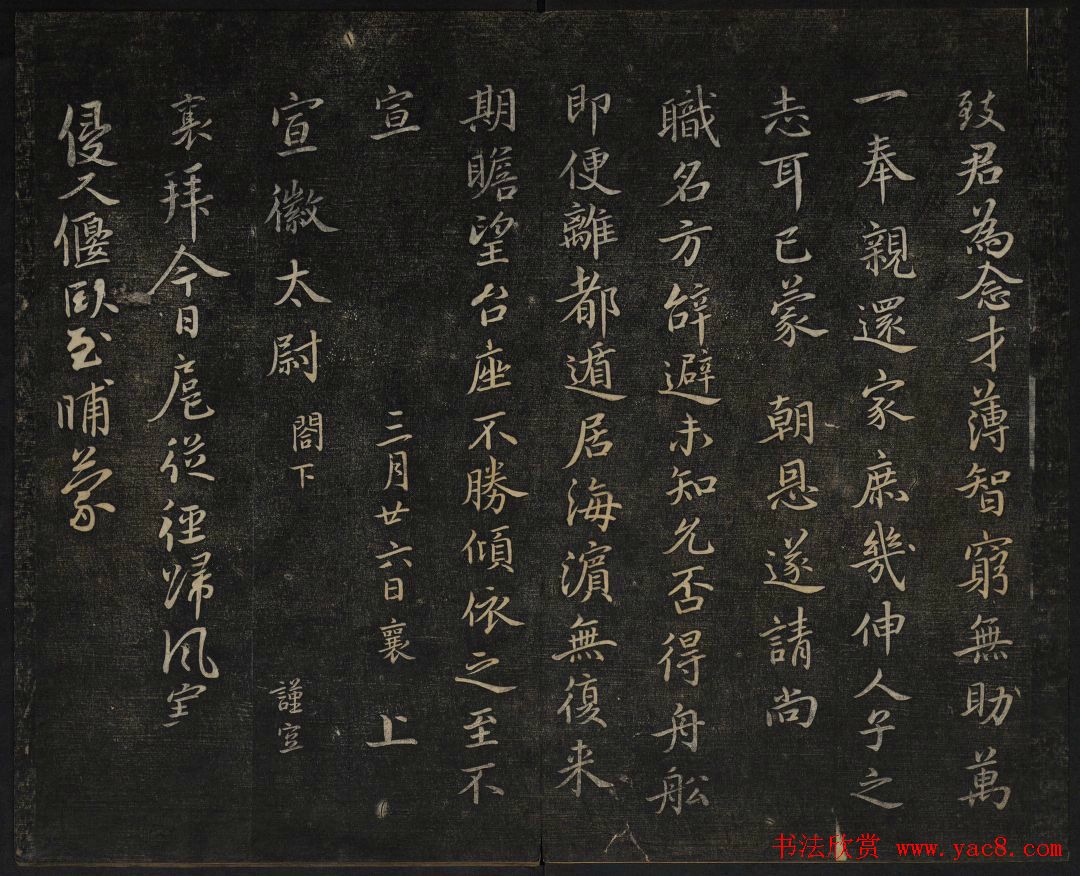 致君為念才薄智窮無助萬
一奉親還家庶幾伸人子之
志耳已蒙 朝恩遂請尚
職名方辞避未知允否得舟舩
即便離都遁居海濵無復来
期瞻望台座不勝傾依之至不
宣 三月廿六日襄 上
宣徽太尉 閤下 謹空
襄拜今日扈從徑歸風室
侵人偃臥至晡蒙
书法欣赏 www.yac8.com